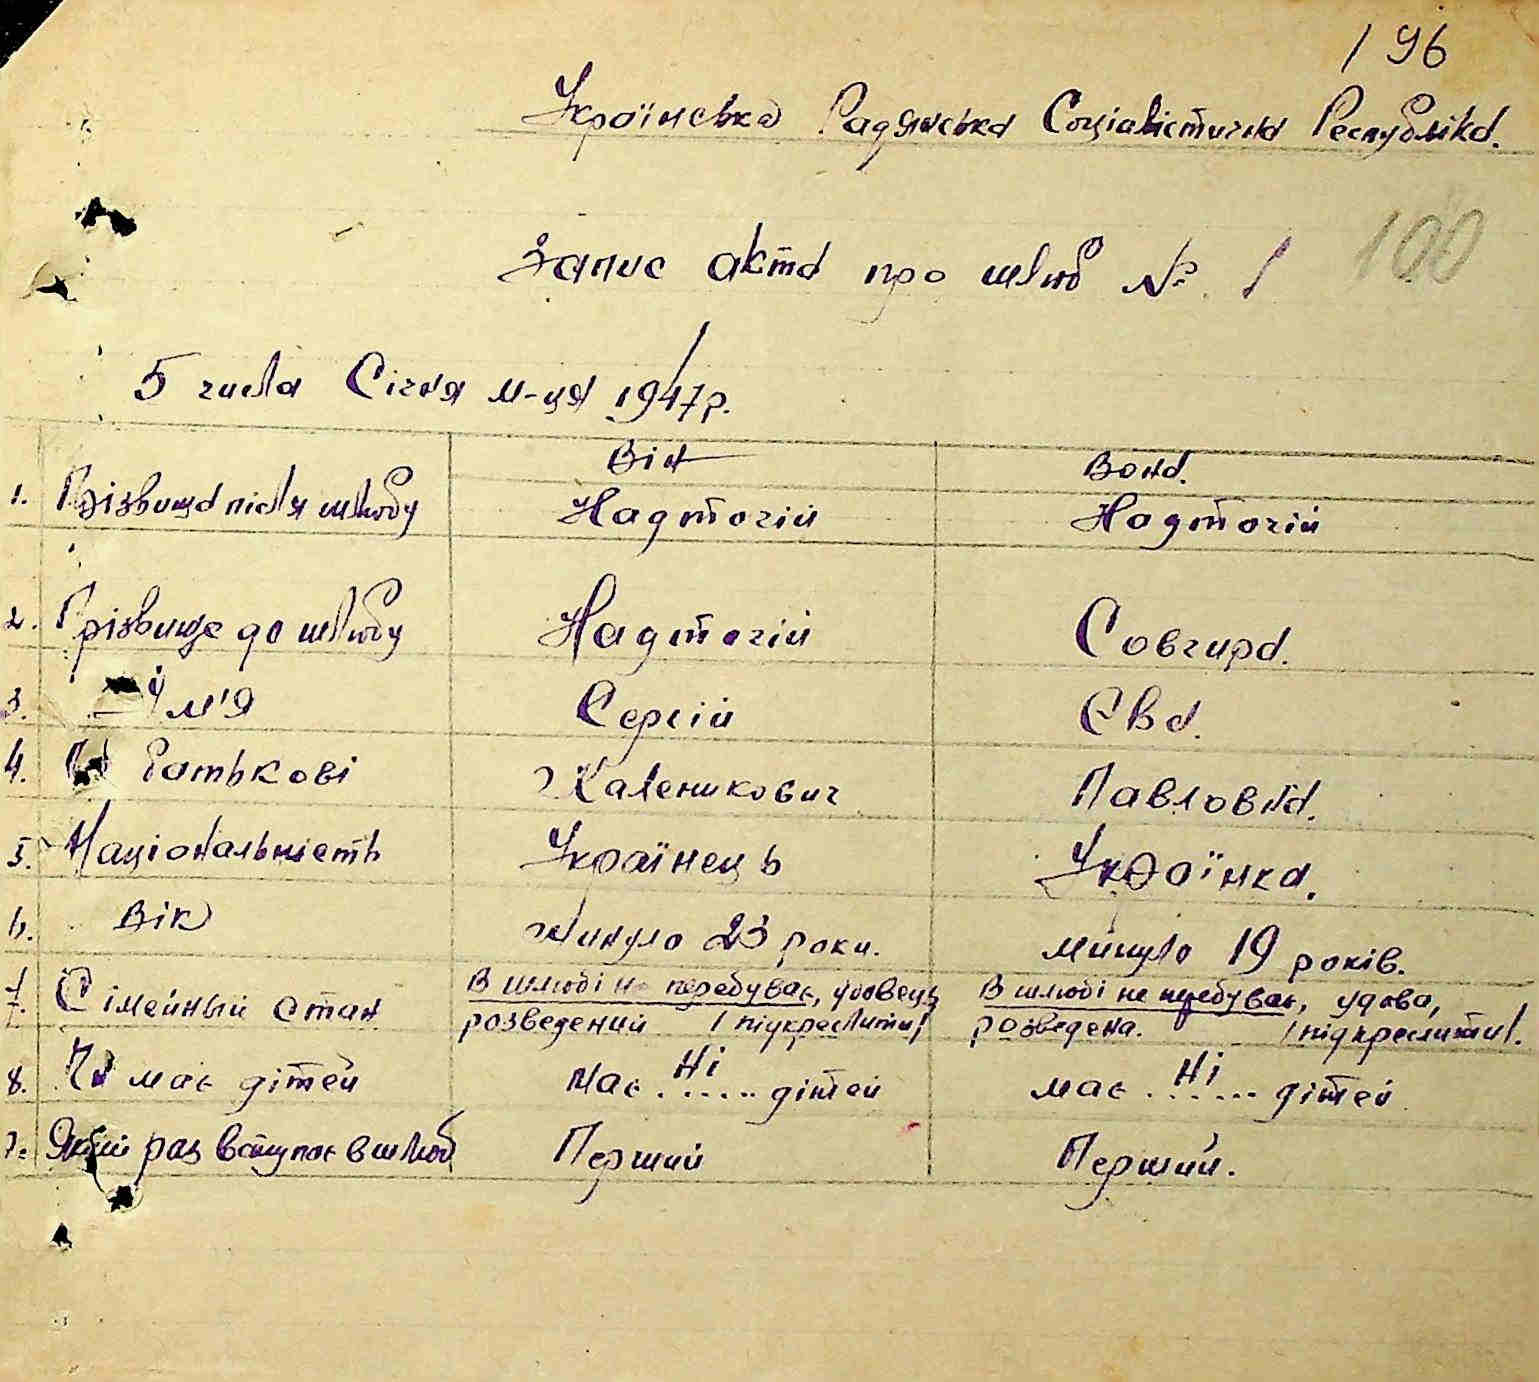 196
Українська Радянська Соціалістична Республіка.
100
Запис акта про шлюб № 1
5 числа Січня м-ця 1947 р.
Він Вона.
1. Прізвища після шлюбу Надточій Надточій
2. Прізвище до шлюбу Надточій Совгира.
3. Ім'я Сергій Єва.
4. По батькові Каленикович Павловна.
5. Національність Українець Українка.
6. Вік минуло 23 роки. минуло 19 років.
7. Сімейный стан В шлюбі не перебуває, удовець В шлюбі не перебуває, удова,
розведений /підкреслити/ розведена. /підкреслити/.
8. Чи має дітей має . Ні ..... дітей має . Ні ..... дітей
9. Який раз вступає в шлюб Перший Перший.